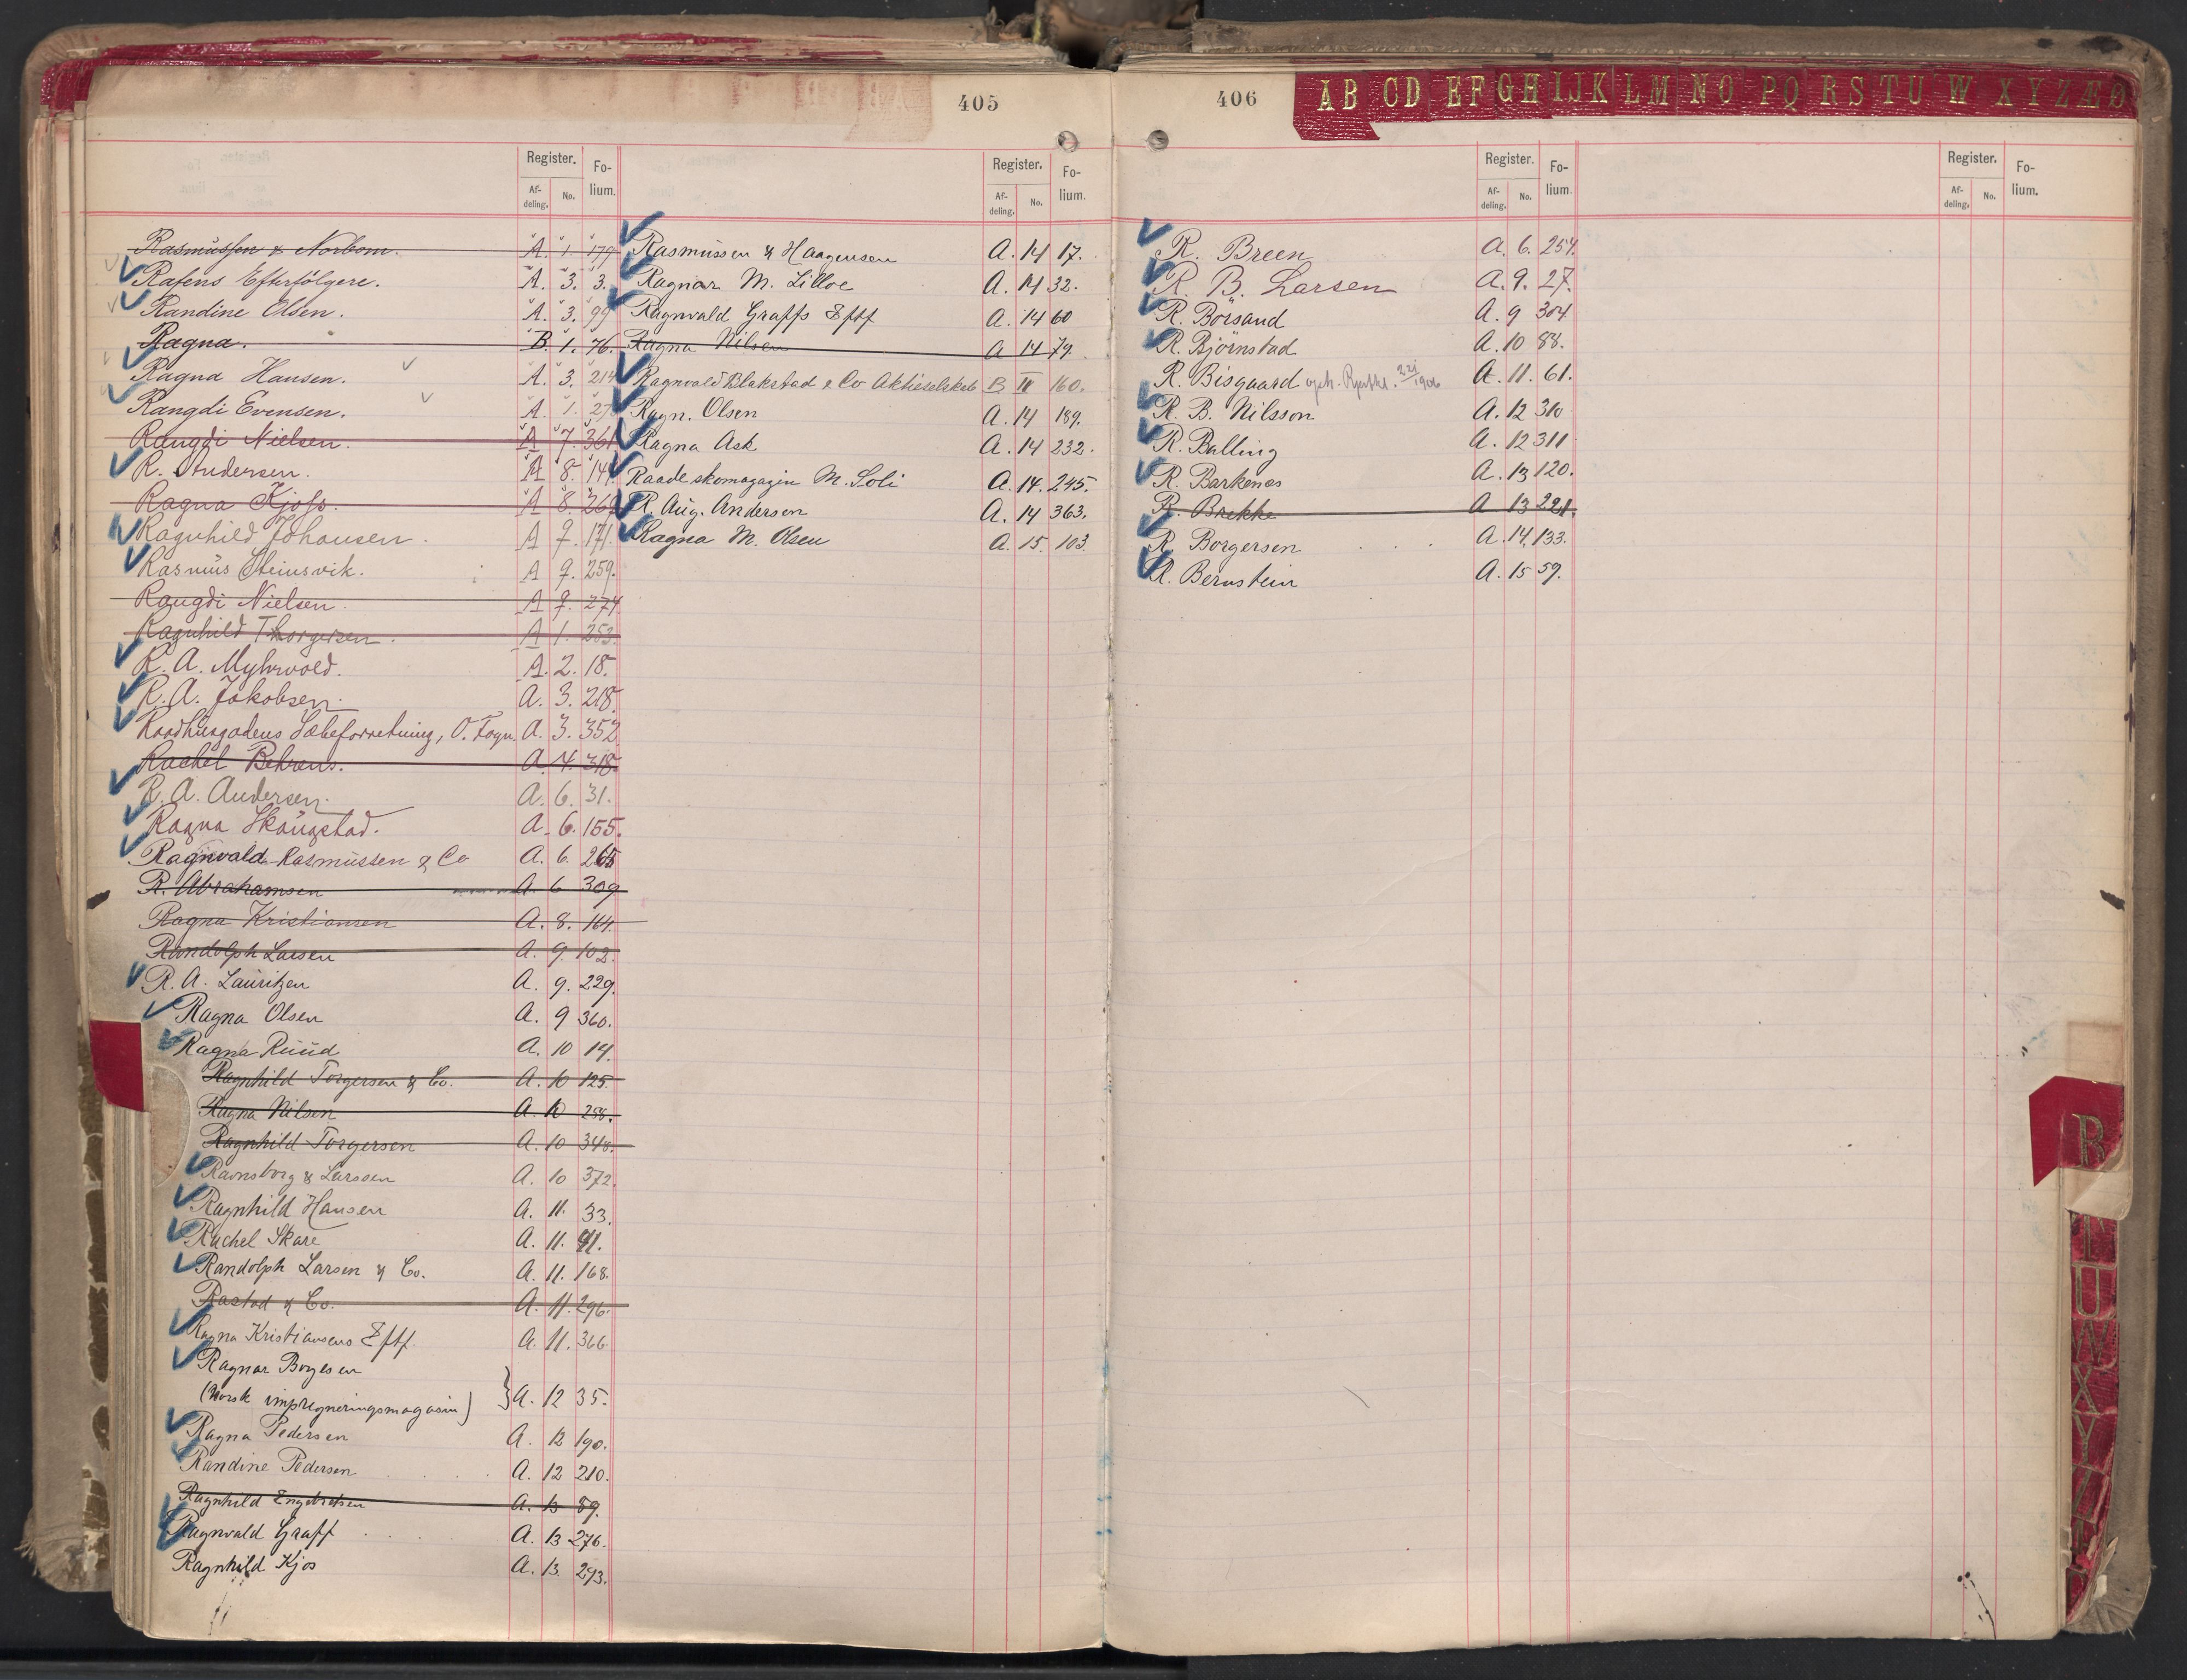 405
Register. Fo-lium.
Af-deling. No.
Rasmussen & Norbom. A. 1. 179
Rafens Efterfölgere. A. 3. 3.
Randine Olsen. A. 3. 99
Ragna. B. 1. 76.
Ragna Hansen. A. 3. 214
Rangdi Evensen. A. 1.
Rangdi Nielsen. A 7. 361
R. Andersen. A 8. 144
Ragna Kjoss. A 8. 267
Ragnhild Johansen. A 9. 171.
Rasmus Steinsvik. A 9. 259.
Rangdi Nielsen. A 9. 274
Ragnhild Thorgersen. A 1. 253.
R. A. Myhrvold. A. 2. 18.
R. A. Jakobsen. A. 3. 218.
Raadhusgadens Sæbeforretning, O. Fogn. A. 3. 352
Rachel Behrens. A. 4. 318.
R. A. Andersen. A. 6. 31.
Ragna Skaugstad. A. 6. 155.
Ragnvald Rasmussen & Co A. 6. 265
R. Abrahamsen A 6 309
Ragna Kristiansen A. 8. 164.
Randolph Larsen A. 9. 102.
R. A. Lauritzen A. 9. 229.
Ragna Olsen A. 9 360.
Ragna Ruud A. 10 14.
Ragnhild Torgersen & Co. A. 10 125.
Ragna Nilsen A. 10 258.
Ragnhild Torgersen A. 10 348.
Ravnsborg & Larssen A. 10 372.
Ragnhild Hansen A. 11. 33.
Rachel Skare A. 11. 91.
Randolph Larsen & Co. A. 11. 168.
Rastad & Co. A. 11. 296.
Ragna Kristiansens Eftf. A. 11. 366.
Ragnar Borgesen
(Norsk impregneringsmagasin) } A. 12 35.
Ragna Pedersen A. 12 190.
Randine Pedersen A. 12 210.
Ragnhild Engebretsen A. 13 89.
Ragnvald Graff A. 13 276.
Ragnhild Kjos A. 13. 293.
Register. Fo-lium.
Af-deling. No.
Rasmussen & Haagensen A. 14 17.
Ragnar M. Lilloe A. 14 32.
Ragnvald Graffs Eftf A. 14 60
Ragna Nilsen A 14 79.
Ragnvald Blakstad & Co Aktieselskab B II 160.
Ragn. Olsen A. 14 189.
Ragna Ask A. 14 232.
Raade skomagazin M. Soli A. 14. 245.
R. Aug. Andersen A. 14 363.
Ragna M. Olsen A. 15. 103.
406
AB CD EF GH IJK LM NO PQ RS TU W X Y Z Æ Ø
Register. Fo-lium.
Af-deling. No.
R. Breen A. 6. 254.
R. B. Larsen A. 9. 27.
R. Börsand A. 9 304
R. Björnstad A. 10 88.
R. Bisgaard 1906 A. 11. 61.
R. B. Nilsson A. 12 310
R. Balling A. 12 311
R. Barkenes A. 13 120.
R. Brekke A 13 221.
R. Borgersen A. 14. 133.
R. Bernstein A. 15 59.
Register. Fo-lium.
Af-deling. No.
R
U
W
X
Y